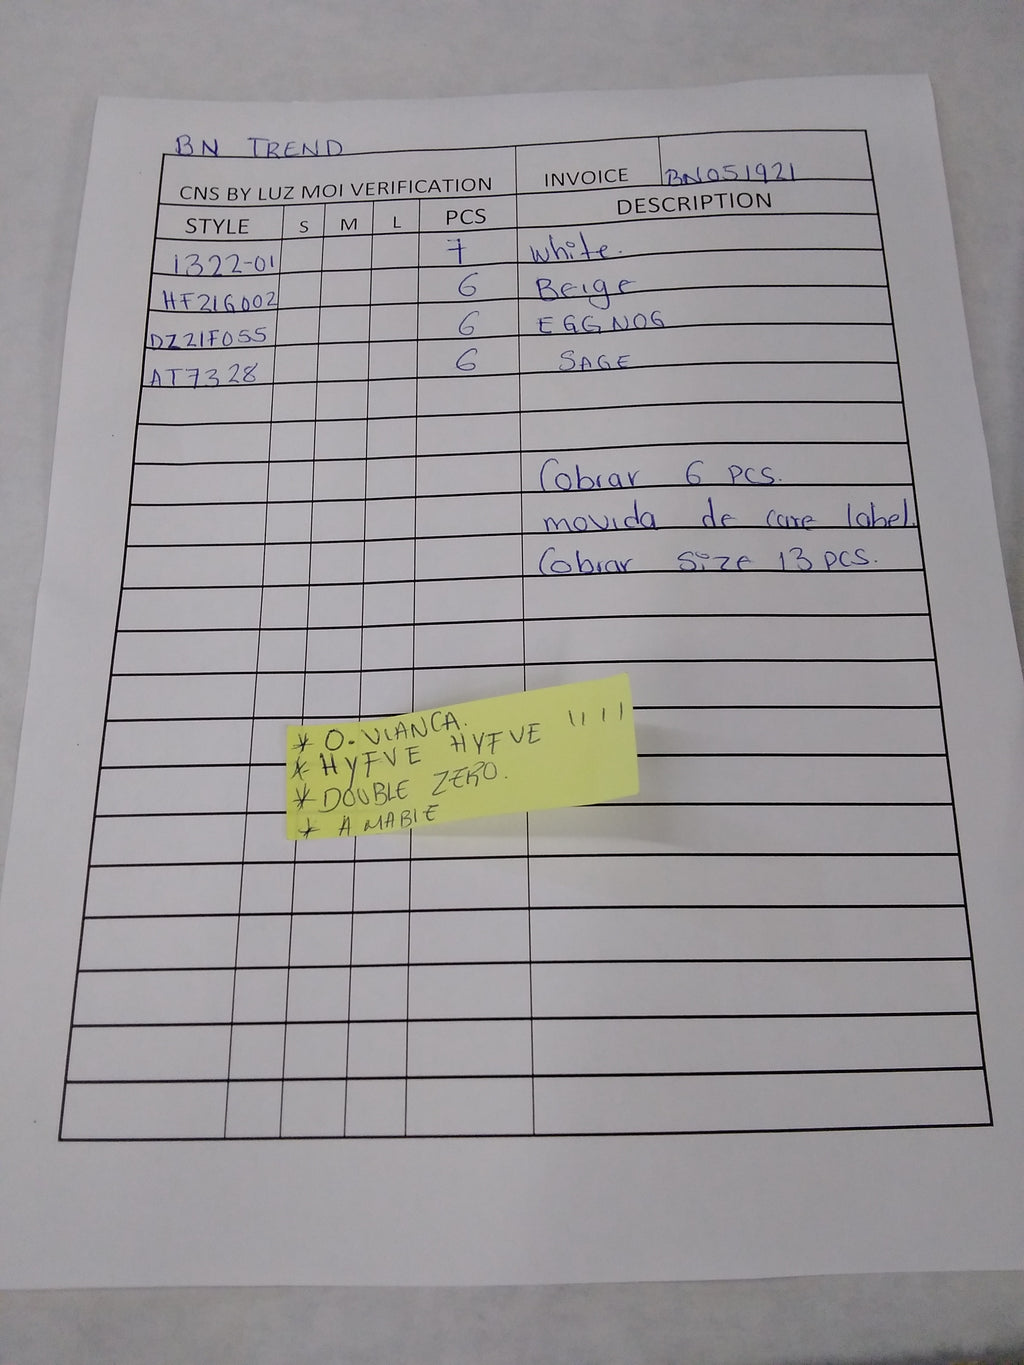 BN TREND
CNS BY LUZ MOI VERIFICATION INVOICE BN051921
STYLE S M L PCS DESCRIPTION
1322-01 7 white.
HF21G002 6 Beige
DZ21F055 6 EGGNOG
AT7328 6 SAGE
Cobrar 6 pcs.
movida de care label.
Cobrar size 13 pcs.
* O. VIANCA.
* HYFVE HYFVE
* DOUBLE ZERO.
* AMABIE